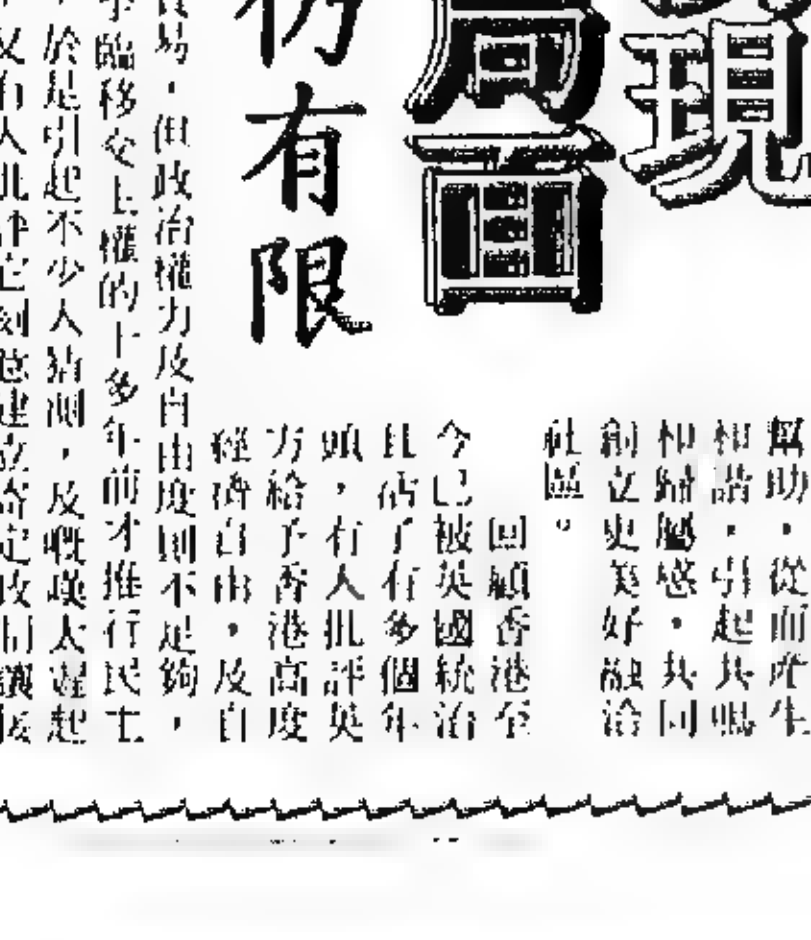 現
局面
仍有限
幫助,從而產生
和諧,引起共鳴
和歸屬感,共同
創立更美好融洽
社區。
回顧香港至
今已被英國統治
且佔了有多個年
頭,有人批評英
方給予香港高度
經濟自由,及自
易,但政治權力及自由度則不足夠,
臨移交主權的十多年前才推行民主
,於是引起不少人猜測,及嘅嘆太遲起
又有人批評它刻意建立